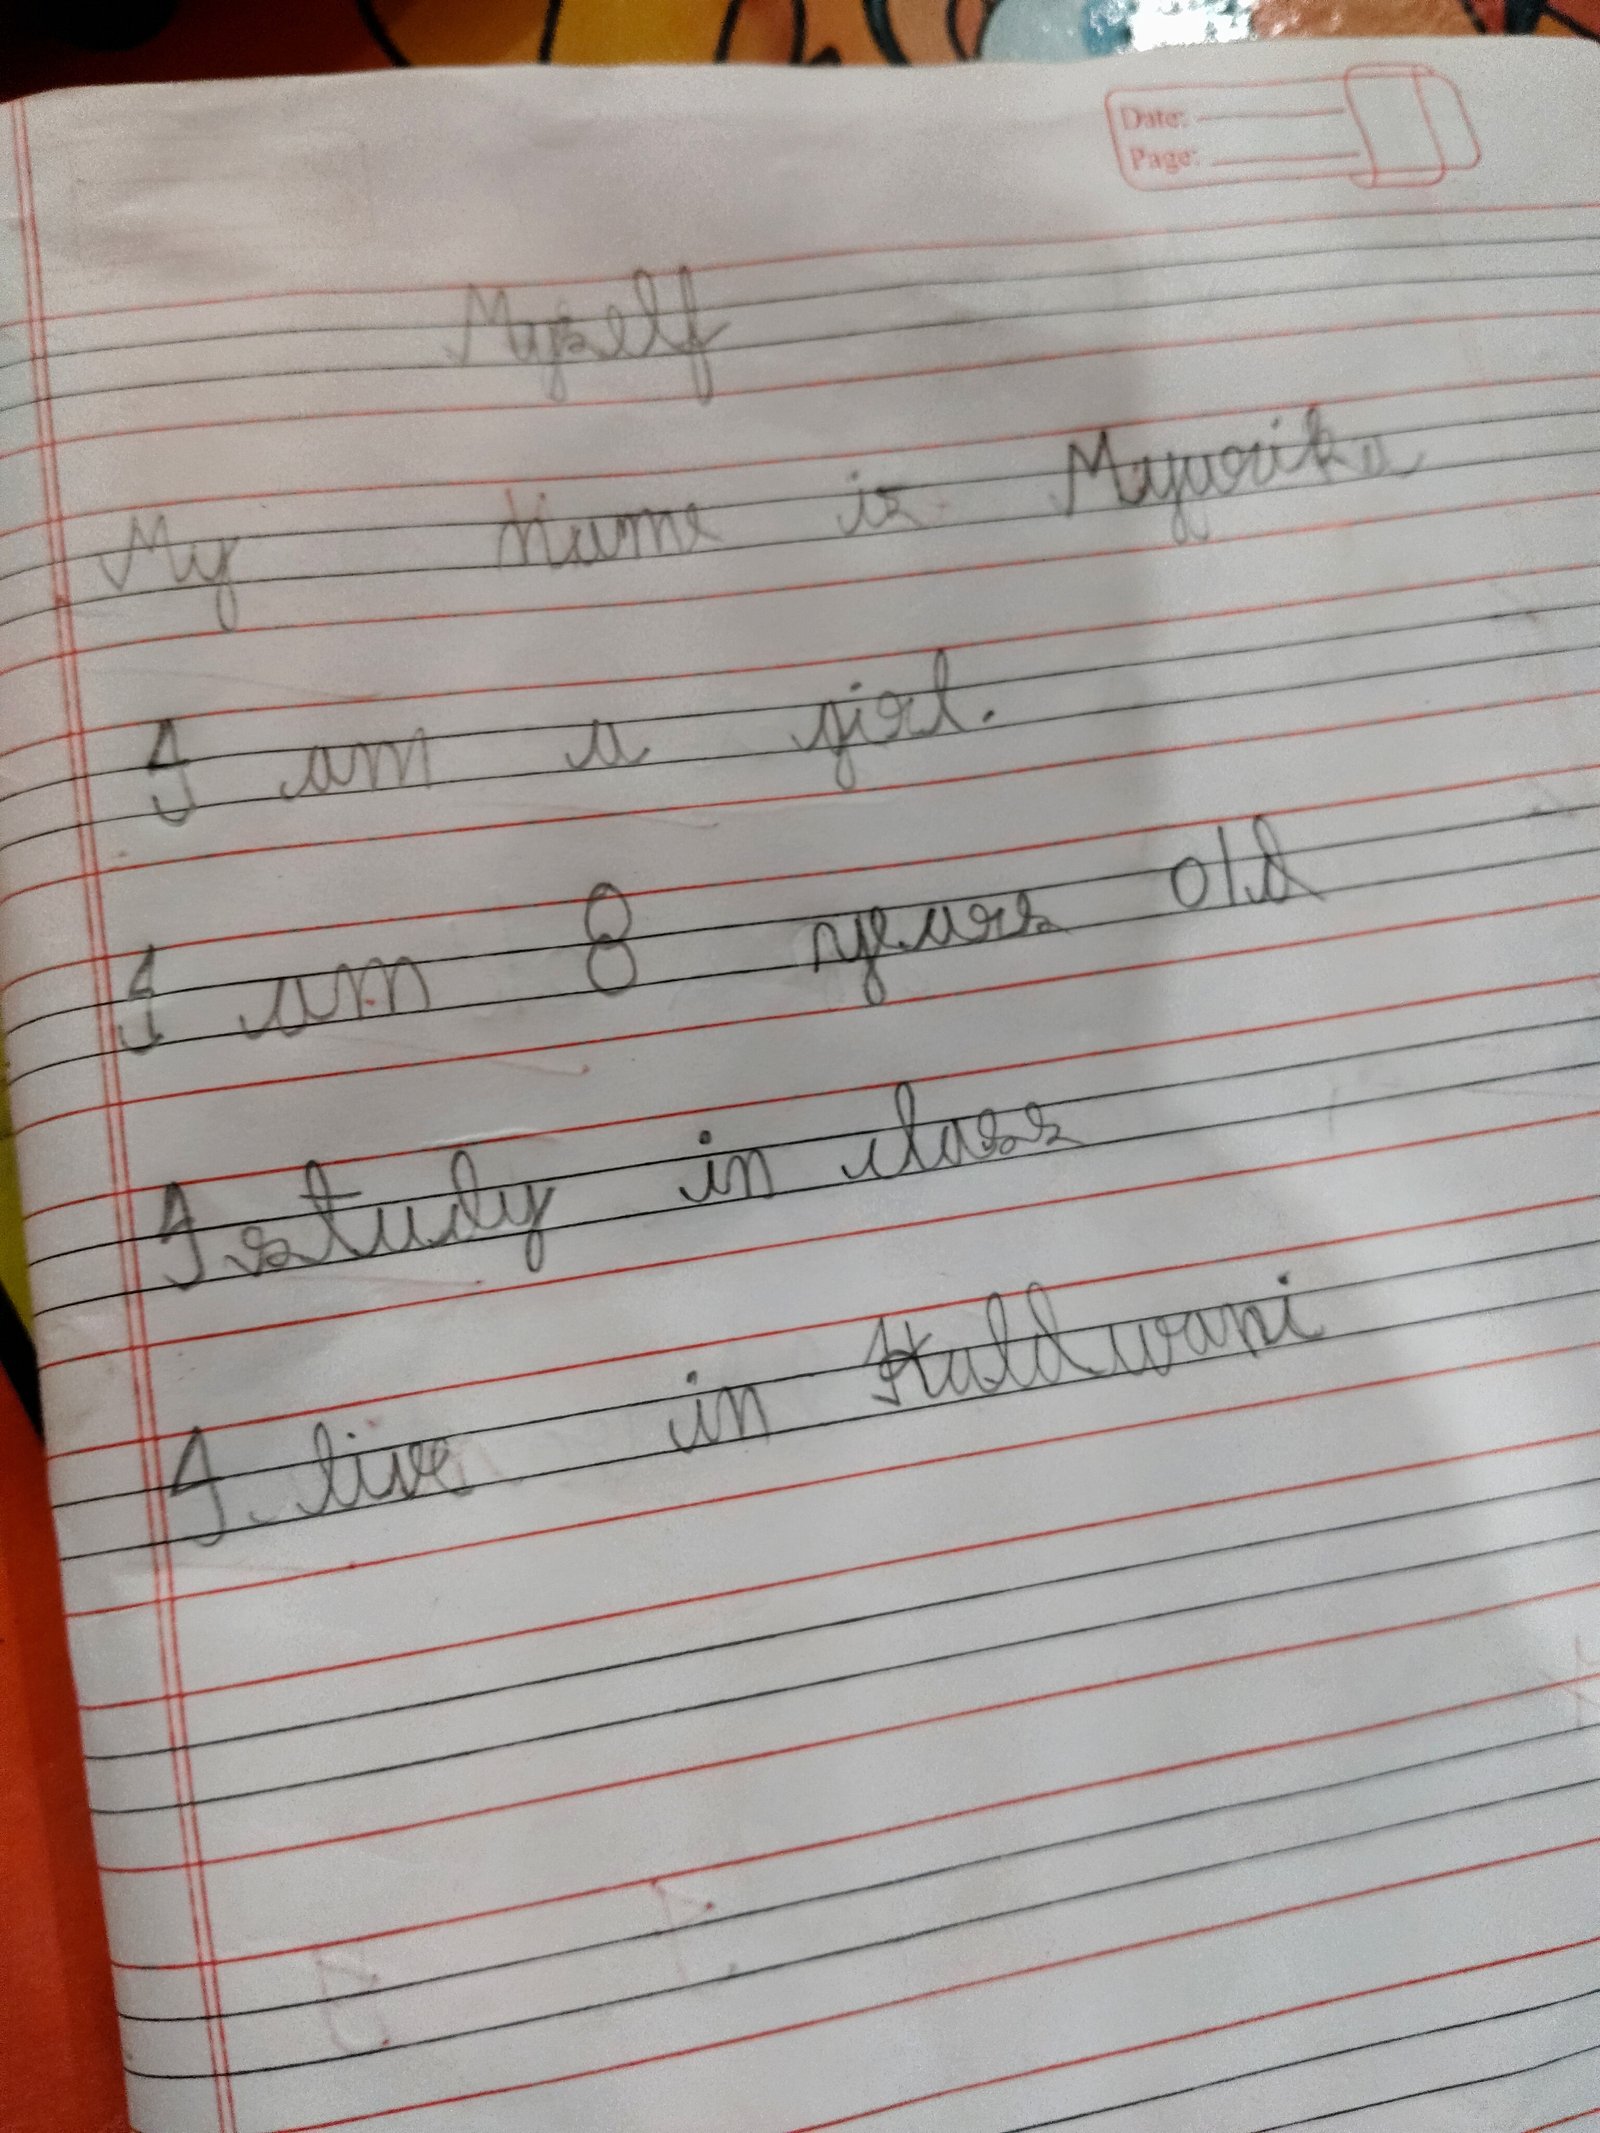 Date:
Page:
Myself
My Name is Myurika
I am a girl.
I am 8 years old
I study in class
I live in Haldwani